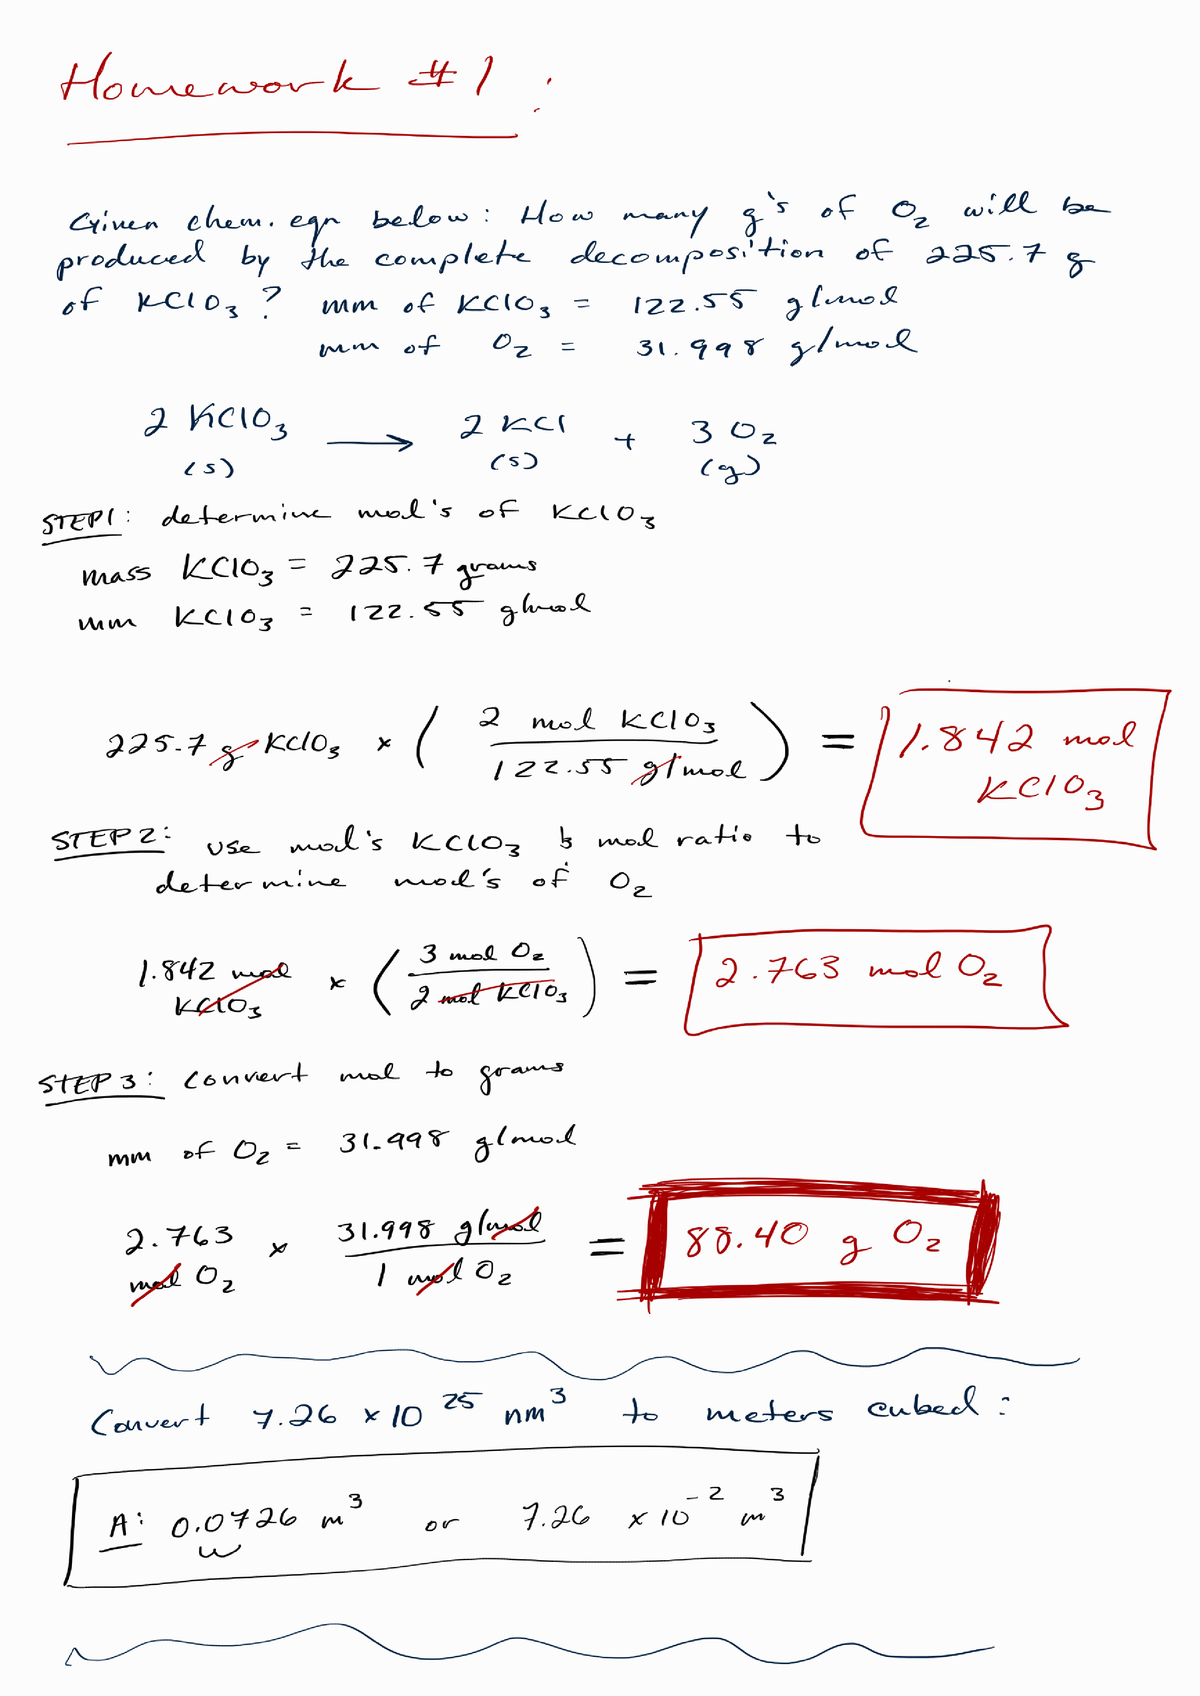 Homework #1:
Given chem. eqn below: How many g's of O₂ will be
produced by the complete decomposition of 225.7 g
of KClO₃? mm of KClO₃ = 122.55 g/mol
mm of O₂ = 31.998 g/mol
2 KClO₃ → 2 KCl + 3 O₂
(s) (s) (g)
STEP1: determine mol's of KClO₃
mass KClO₃ = 225.7 grams
mm KClO₃ = 122.55 g/mol
225.7 g KClO₃ × ( 2 mol KClO₃ / 122.55 g/mol ) = 1.842 mol KClO₃
STEP 2: use mol's KClO₃ & mol ratio to
determine mol's of O₂
1.842 mol KClO₃ × ( 3 mol O₂ / 2 mol KClO₃ ) = 2.763 mol O₂
STEP 3: Convert mol to grams
mm of O₂ = 31.998 g/mol
2.763 mol O₂ × 31.998 g/mol / 1 mol O₂ = 88.40 g O₂
Convert 7.26 × 10²⁵ nm³ to meters cubed:
A: 0.0726 m³ or 7.26 × 10⁻² m³